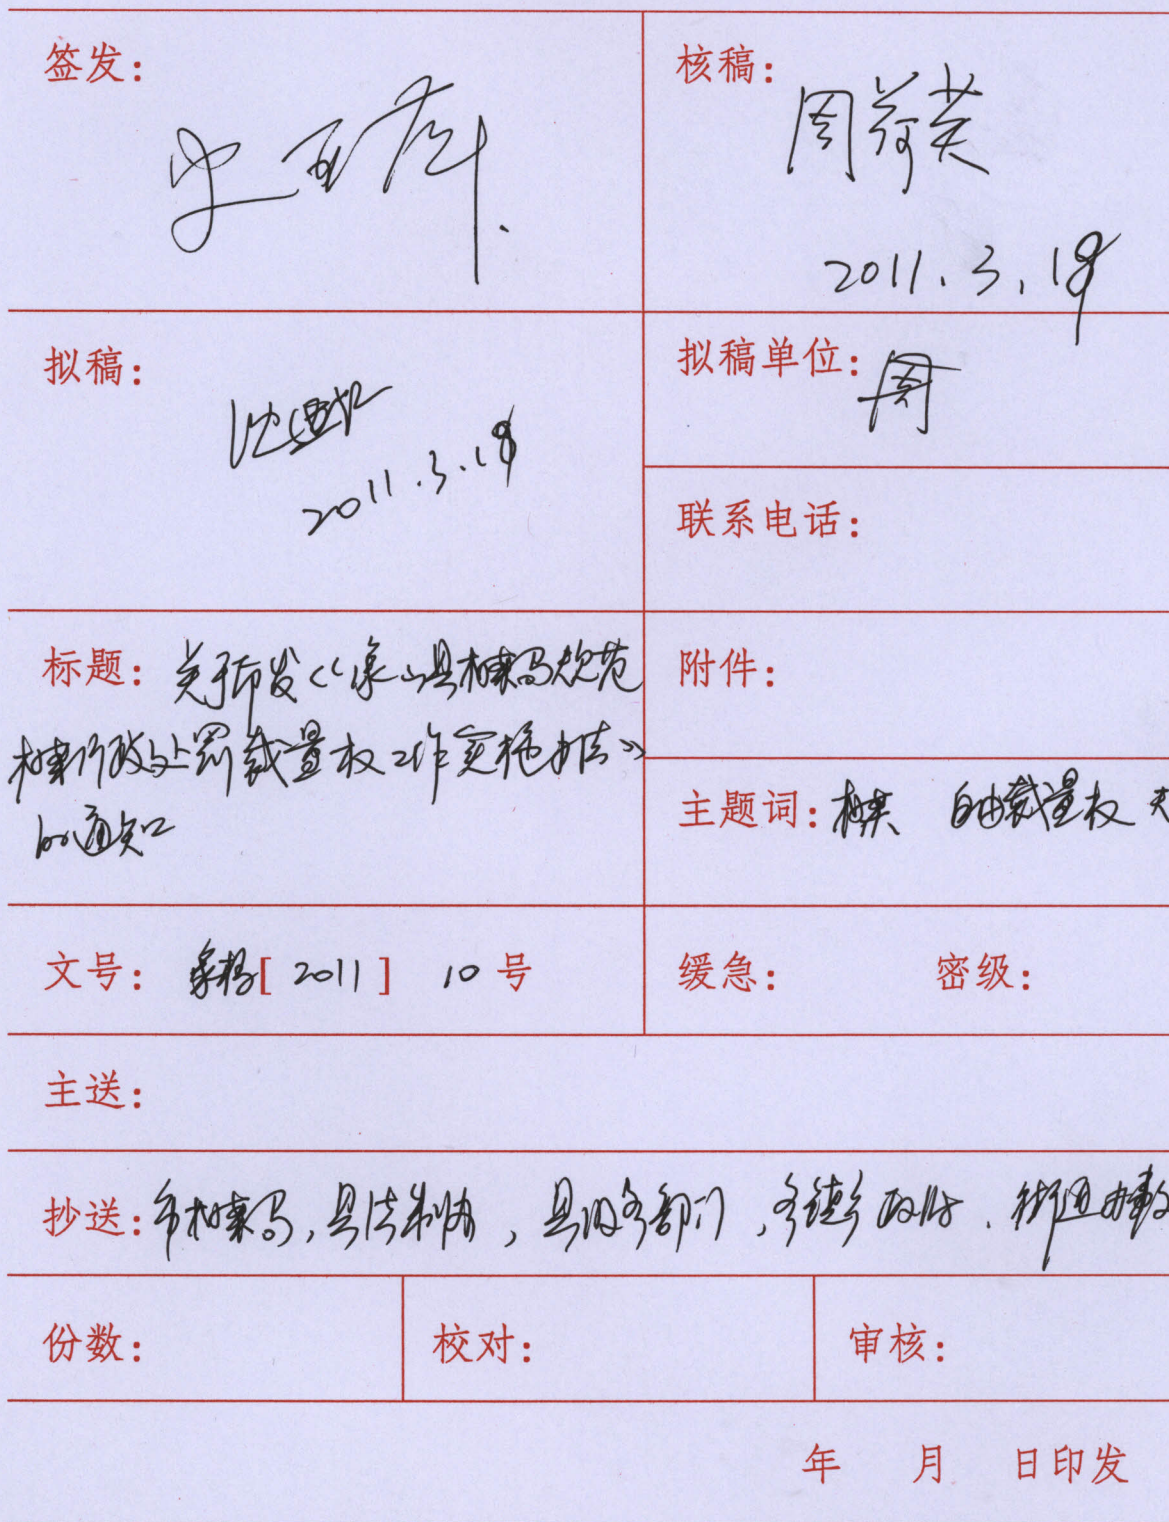 签发： 核稿：
周荷英
2011.3.18
拟稿： 拟稿单位：
2011.3.18
联系电话：
标题： 关于印发《象山县档案局规范 附件：
档案行政处罚裁量权工作实施办法》
的通知
主题词：档案 自由裁量权
文号：象档[2011] 10号 缓急： 密级：
主送：
抄送：市档案局，县法制办，县级各部门，各镇乡政府、街道办事
份数： 校对： 审核：
年 月 日印发